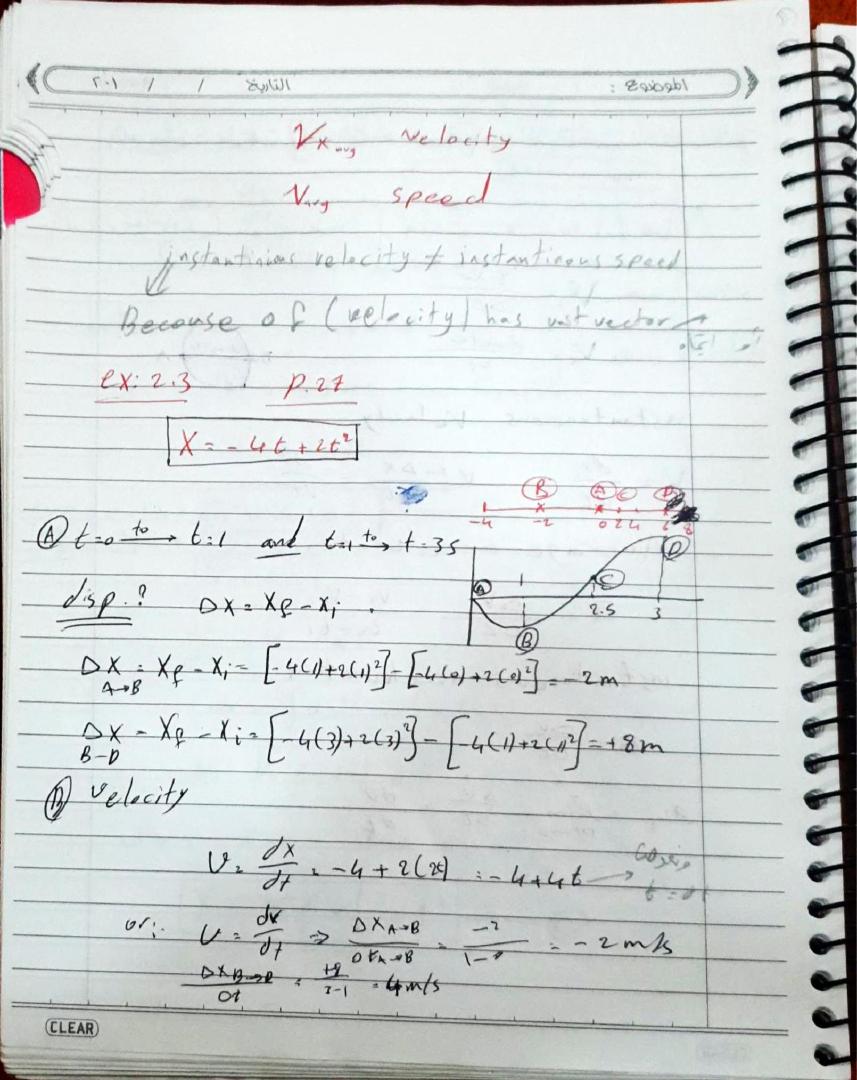 الموضوع : التاريخ / / ٢٠١
Vx avg velocity
Vavg speed
instantinious velocity ≠ instantineous speed
Becouse of (velocity) has vector
ex: 2.3 p.27
X = -4t + 2t²
B A C D
-4 -2 0 2 4 6 8
A t=0 to→ t=1 and t=1 to→ t=3s
A B C D 1 2.5 3
disp.? ΔX = Xf - Xi .
ΔX A→B = Xf - Xi = [-4(1)+2(1)²] - [-4(0)+2(0)²] = -2m
ΔX B-D = Xf - Xi = [-4(3)+2(3)²] - [-4(1)+2(1)²] = +8m
B velocity
V = dx/dt = -4 + 2(2t) = -4+4t →
or: V = dx/dt ⇒ ΔXA→B / ΔtA→B = -2 / 1-0 = -2 m/s
ΔXB→D / Δt = +8 / 3-1 = 4 m/s
CLEAR